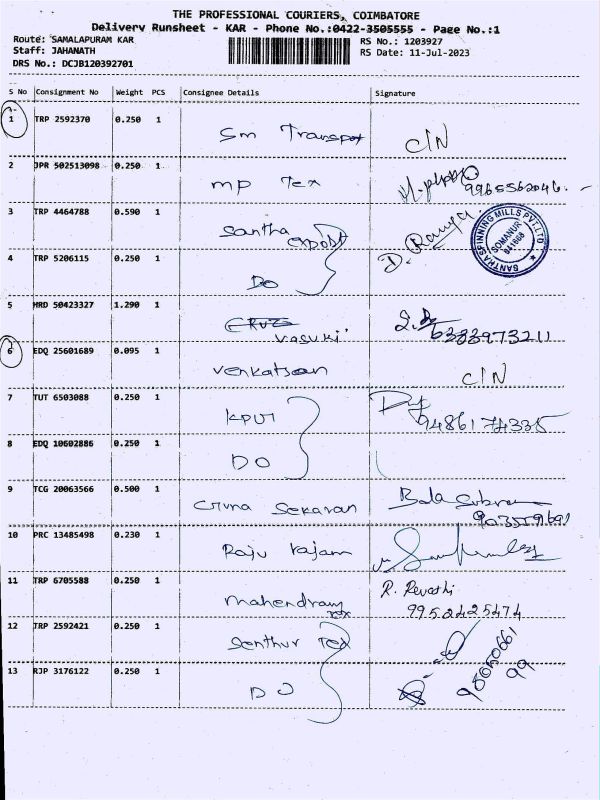 THE PROFESSIONAL COURIERS, COIMBATORE
Delivery Runsheet - KAR - Phone No.:0422-3505555 - Page No.:1
Route: SAMALAPURAM KAR RS No.: 1203927
Staff: JAHANATH RS Date: 11-Jul-2023
DRS No.: DCJB120392701
S No Consignment No Weight PCS Consignee Details Signature
1 TRP 2592370 0.250 1 Sm Transpot C/N
2 JPR 502513098 0.250 1 mp Tex
3 TRP 4464788 0.590 1 Santha D. Ramya
expost
SANTHA SPINNING MILLS PVT.LTD
SOMANUR
641668
4 TRP 5206115 0.250 1 Do
5 MRD 50423327 1.290 1 vasuki 6383973211
6 EDQ 25601689 0.095 1 C/N
7 TUT 6503088 0.250 1
8 EDQ 10602886 0.250 1 DO
9 TCG 20063566 0.500 1 Guna Sekaran
10 PRC 13485498 0.230 1 Raju rajam
11 TRP 6705588 0.250 1 mahendran R. Revathi
tex 9952425474
12 TRP 2592421 0.250 1 Senthur Tex
13 RJP 3176122 0.250 1 DO